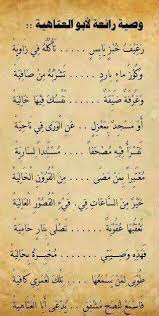 وصية رائعة لأبو العتاهية ::
رَغِيفُ خُبْزٍ يَابِسٍ ..... تَأكُلُهُ فِي زَاوِيَة
وَكُوزُ مَاءٍ بَارِدٍ ..... تَشْرَبُهُ مِنْ صَافِيَة
وَغُرفَةٌ ضَيِّقَةٌ ..... نَفْسُكَ فِيْهَا خَالِيَة
أَوْ مَسجِدٌ بِمَعزِلٍ ..... عَنِ الوَرَى فِي نَاحِيَة
تَقْرَأُ فِيْهِ مُصْحَفاً ..... مُسْتَنِداً لِسَارِيَة
مُعْتَبِراً بِمَنْ مَضَى ..... مِنَ القُرُونِ الخَالِيَة
خَيْرٌ مِنَ السَّاعَاتِ فِي ..... فَيْءِ القُصُورِ العَالِيَة
تَعْقُبُهَا عُقُوبَةٌ ..... تَصْلَى بِنَارٍ حَامِيَة
فَهَذِهِ وَصِيَّتِي ..... مُخْبِرَةٌ بِحَالِيَة
طُوبَى لِمَنْ يَسْمَعُهَا ..... تِلْكَ لَعَمْرِي كَافِيَة
فَاسْمَعْ لِنُصْحِ مُشْفِقٍ .. يُدْعَى أَبَا العَتَاهِيَة